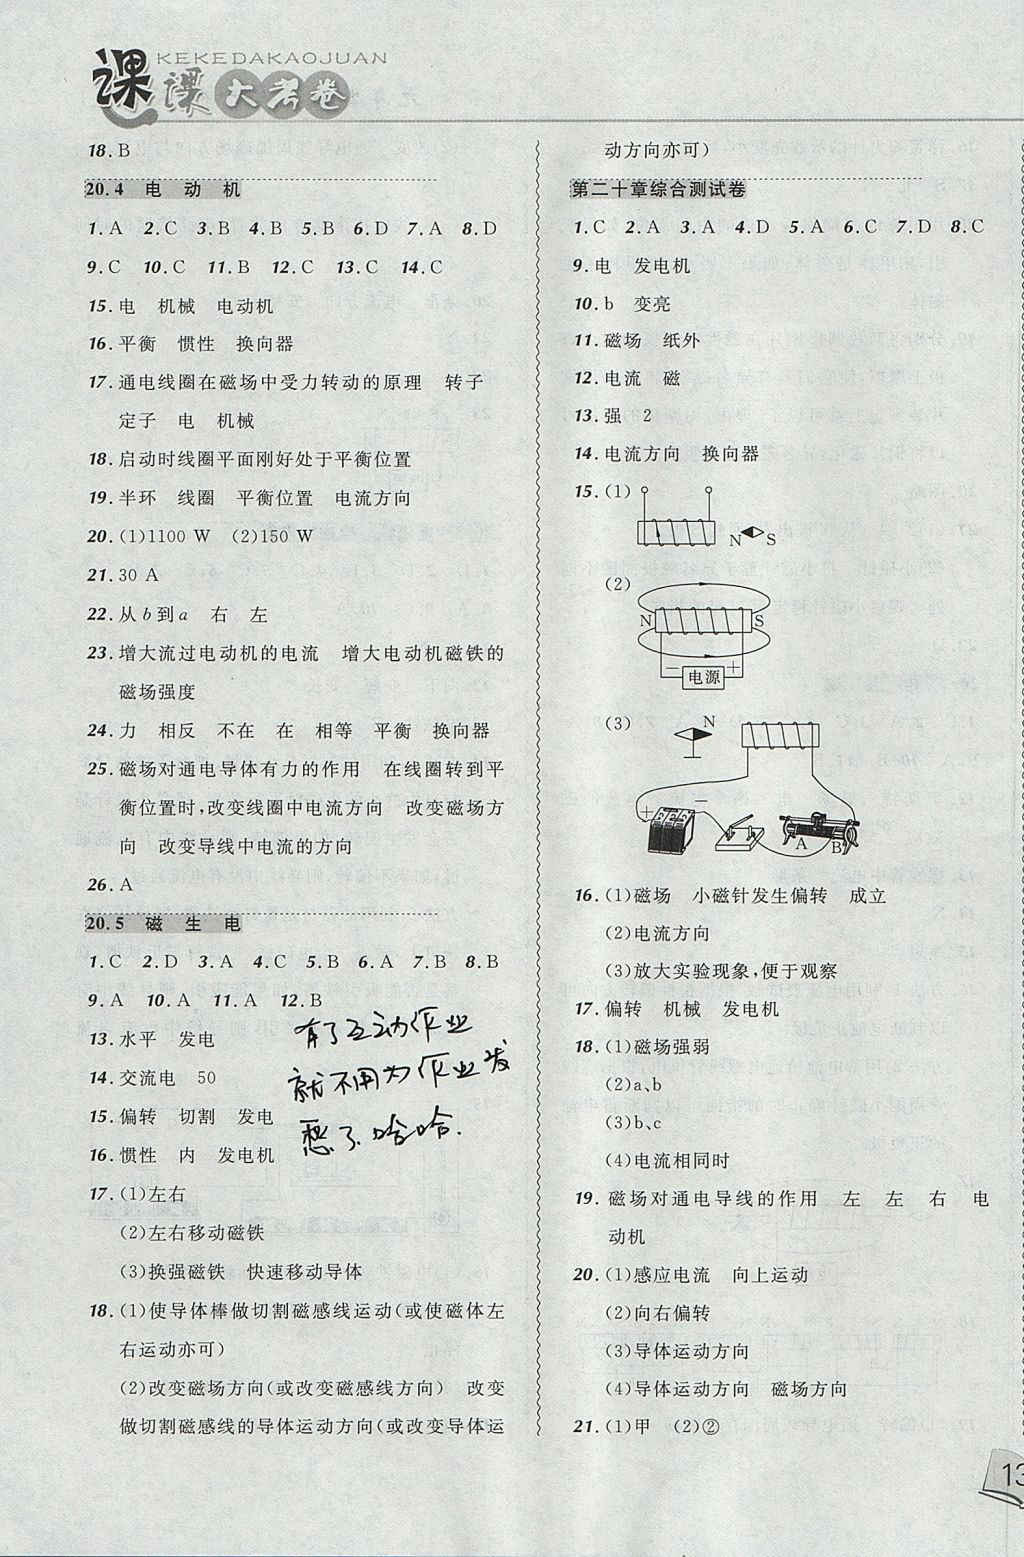 KEKEDAKAOJUAN
课课大考卷
18.B
20.4 电 动 机
1.A 2.C 3.B 4.B 5.B 6.D 7.A 8.D
9.C 10.C 11.B 12.C 13.C 14.C
15.电 机械 电动机
16.平衡 惯性 换向器
17.通电线圈在磁场中受力转动的原理 转子
定子 电 机械
18.启动时线圈平面刚好处于平衡位置
19.半环 线圈 平衡位置 电流方向
20.(1)1100 W (2)150 W
21.30 A
22.从b到a 右 左
23.增大流过电动机的电流 增大电动机磁铁的
磁场强度
24.力 相反 不在 在 相等 平衡 换向器
25.磁场对通电导体有力的作用 在线圈转到平
衡位置时,改变线圈中电流方向 改变磁场方
向 改变导线中电流的方向
26.A
20.5 磁 生 电
1.C 2.D 3.A 4.C 5.B 6.A 7.B 8.B
9.A 10.A 11.A 12.B
13.水平 发电
14.交流电 50
15.偏转 切割 发电
16.惯性 内 发电机
有了互动作业
就不用为作业发
愁了哈哈.
17.(1)左右
(2)左右移动磁铁
(3)换强磁铁 快速移动导体
18.(1)使导体棒做切割磁感线运动(或使磁体左
右运动亦可)
(2)改变磁场方向(或改变磁感线方向) 改变
做切割磁感线的导体运动方向(或改变导体运
动方向亦可)
第二十章综合测试卷
1.C 2.A 3.A 4.D 5.A 6.C 7.D 8.C
9.电 发电机
10.b 变亮
11.磁场 纸外
12.电流 磁
13.强 2
14.电流方向 换向器
15.(1)
N S
(2)
N S
− +
电源
(3)
N
+ −
A B
16.(1)磁场 小磁针发生偏转 成立
(2)电流方向
(3)放大实验现象,便于观察
17.偏转 机械 发电机
18.(1)磁场强弱
(2)a、b
(3)b、c
(4)电流相同时
19.磁场对通电导线的作用 左 左 右 电
动机
20.(1)感应电流 向上运动
(2)向右偏转
(3)导体运动方向
(4)导体运动方向 磁场方向
21.(1)甲 (2)②
13